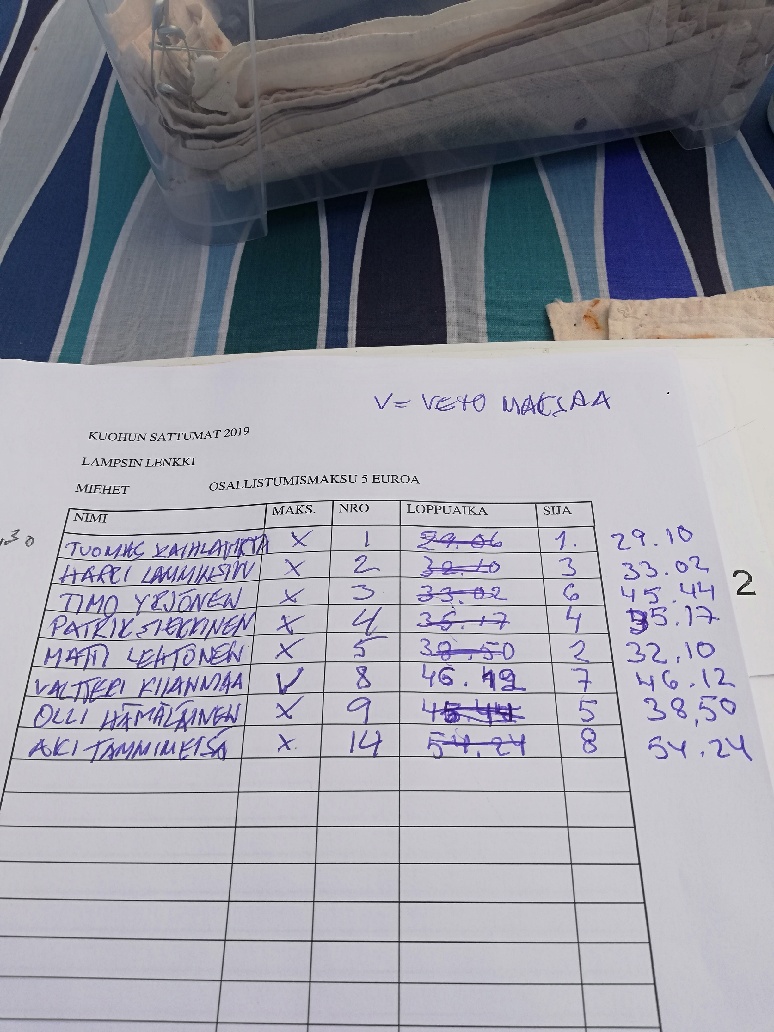 V= VETO MAKSAA
KUOHUN SATTUMAT 2019
LAMPSIN LENKKI
MIEHET OSALLISTUMISMAKSU 5 EUROA
NIMI MAKS. NRO LOPPUAIKA SIJA
30
TUOMAS X 1 29.06 1. 29.10
HARRI X 2 32.10 3 33.02
TIMO YRJÖNEN X 3 33.02 6 45.44
PATRIK X 4 35.17 4 35.17
MATTI LEHTONEN X 5 38.50 2 32.10
VALTTERI KIIANMAA V 8 46.12 7 46.12
OLLI HÄMÄLÄINEN X 9 45.44 5 38,50
AKI TAMMIMETSÄ X. 14 54.24 8 54.24
2